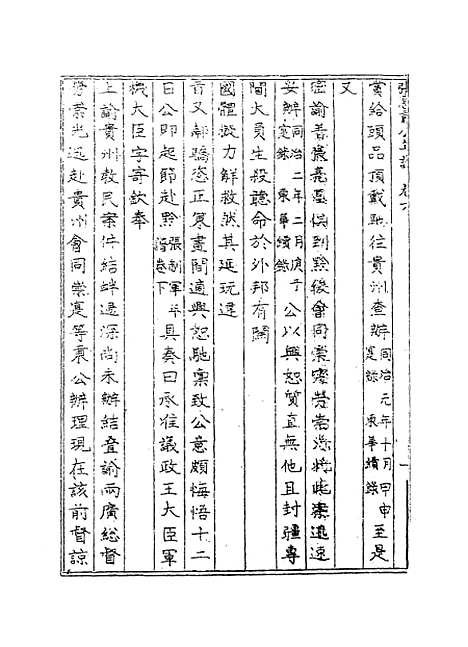 賞給頭品頂戴馳往貴州查辦同治元年十月甲申實錄東華續錄至是
又
密諭著張亮基俟到黔後會同崇實勞崇光將此案迅速
妥辦同治二年二月庚子實錄東華續錄公以興恕質直無他且封疆專
閫大員生殺聽命於外邦有關
國體欲力解救然其延玩違
旨又鄰驕恣正籌畫間適興恕馳稟致公意頗悔悟十二
日公即起節赴黔張制軍年譜卷下具奏曰承准議政王大臣軍
機大臣字寄欽奉
上諭貴州教民案件結衅過深尚未辦結查諭兩廣總督
勞崇光迅赴貴州會同崇實等秉公辦理現在該前督諒